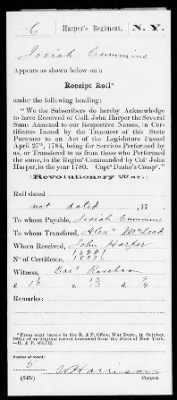 C Harper's Regiment, N. Y.
Josiah Cummins
Appears as shown below on a
Receipt Roll*
under the following heading:
"We the Subscribers do hereby Acknowledge
to have Received of Coll. John Harper the Several
Sums Annexed to our Respective Names, in
Certificates Issued by the Treasurer of this State
Pursuant to an Act of the Legislature Passed
April 27th, 1784, being for Services Performed by
us, or Transferred to us from those who Performed
the same, in the Regim't Commanded by Col° John
Harper, in the year 1780. Capt"
(Revolutionary War.)
Roll dated
not dated, 17
To whom Payable, Josiah Cummins
To whom Transferred, Alexr McLeod
When Received, John Harper
N° of Certificate,
Witness,
£ 16 s 13 d
Remarks:
*From copy (made in the R. & P. Office, War Dept., in October,
of an original record borrowed from the State of New York.
—R. & P.
Number of roll:
5
W Harrison
Copyist.